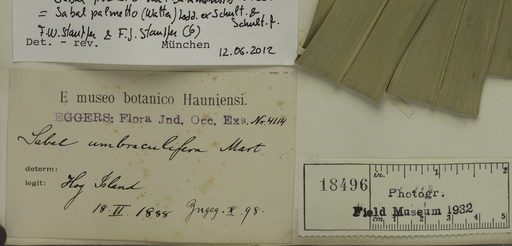 = Sabal palmetto (Walter) Lodd. ex Schult. &
Schult. f.
F.W. Stauffer & F.J. Stauffer (G)
Det. - rev. München 12.06.2012
E museo botanico Hauniensi.
EGGERS: Flora Ind. Occ. Exs. Nr. 4114
Sabal umbraculifera Mart.
determ:
legit: Hog Island
18.II 1888 X. 98.
18496
Photogr.
Field Museum 1932
in. 1 2
1 2 3 4 5